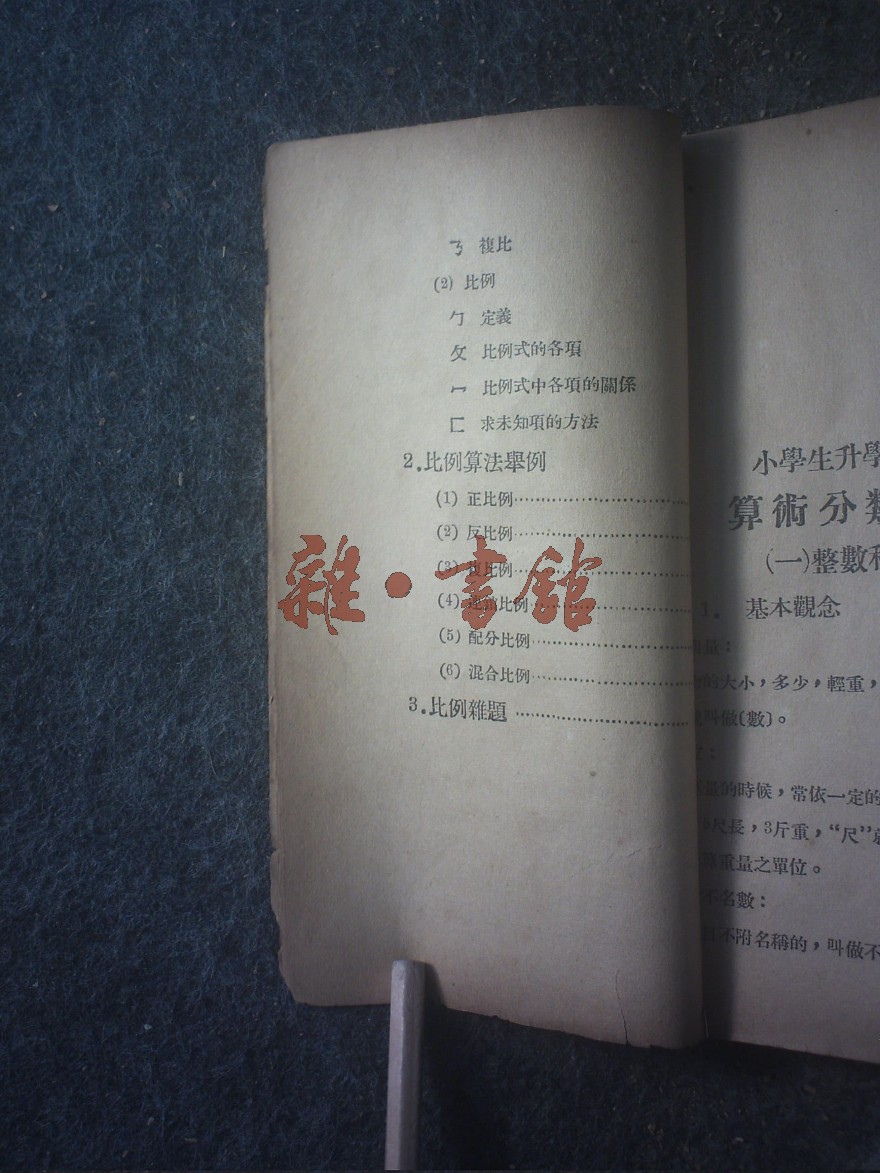 ㄋ 複比
(2) 比例
ㄅ 定義
ㄆ 比例式的各項
ㄇ 比例式中各項的關係
ㄈ 求未知項的方法
2.比例算法舉例
(1) 正比例
(2) 反比例
(3) 複比例
(4) 連鎖比例
(5) 配分比例
(6) 混合比例
3.比例雜題
雜·書館
小學生升學
算術分類
(一)整數和
1. 基本觀念
量：
的大小，多少，輕重，
叫做〔數〕。
量的時候，常依一定的
尺長，3斤重，“尺”
重量之單位。
不名數：
不附名稱的，叫做不